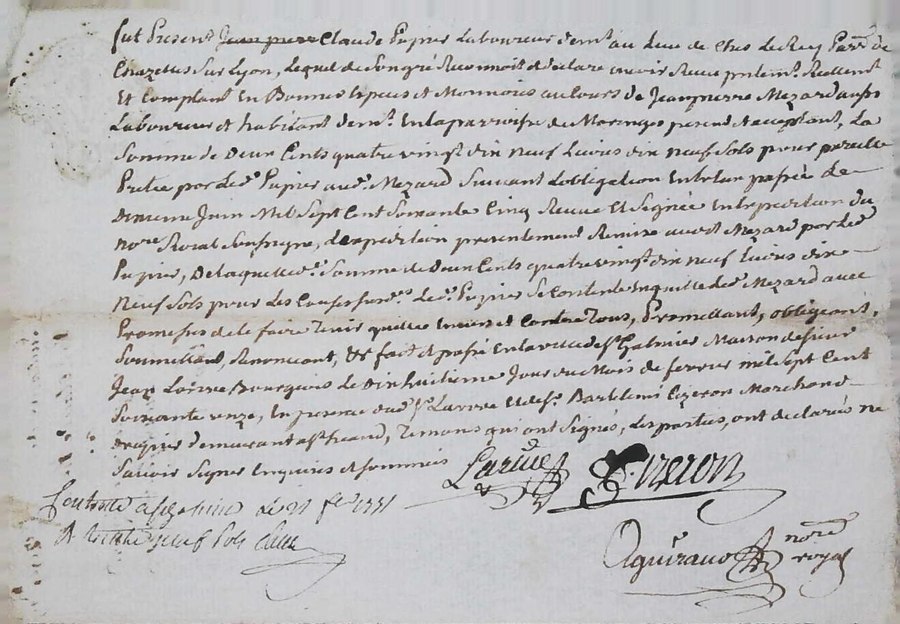 fut Present Jean pierre Claude Pupier Laboureur demt au lieu de Chés Le Roy Parse de
Chazettes sur Lyon, Lequel de Songré Reconnoit et declare avoir Receu presentemt Reellemt
Et Comptant En Bonnes Especes et Monnoies au Cours de Jeanpierre Mezard aussy
Laboureur et habitant demt En la parroisse de Maringes present et acceptant, La
Somme de Deux Cents quatre vingt dix neuf Livres dix neuf Sols pour pareille
Pretée par Led. Pupier aud. Mezard Suivant L'obligation passée Le
Juin Mil Sept Cent Soixante Cinq Receue Et Signée En Expedition du
nore Roial Soussigné, L'expedition presentement Remise aud. Mezard par Led.
Pupier, De laquelle d. Somme de Deux Cents quatre vingt dix neuf Livres dix
Neuf Sols pour Les Causes Led. Pupier Se Contente En quitte Led. Mezard avec
Promesses de le faire tenir quitte Envers et Contre tous, Promettant, obligeant,
Soumettant, Renonçant, &c fait et passé En la ville de St Galmier Maison de sieur
Jean Larive Bourgeois Le Dix huitieme Jour du Mois de fevrier mil Sept Cent
Soixante onze, En presence dud. Sr Larive Et de Sr Barthlemi Cizeron Marchand
Drapier demeurant aud. St heand, Temoins qui ont Signés, Les parties, ont declarés ne
Savoir Signer Enquises et Sommées
Larive Cizeron
Contrôlé a St Galmier Le 21 fer 1771
R trente neuf Sols
Aguiraud nore
royal